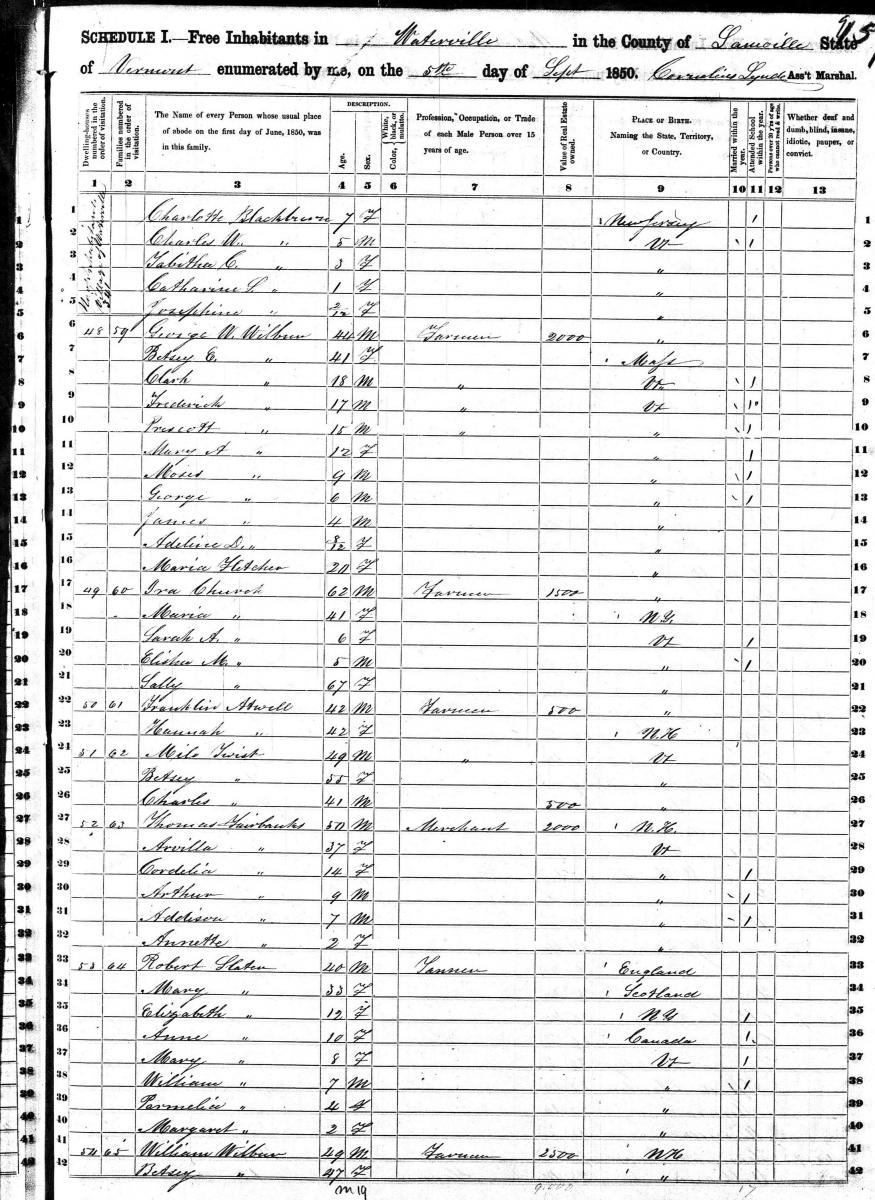 915
SCHEDULE I.—Free Inhabitants in Waterville in the County of Lamoille State
of Vermont enumerated by me, on the 5th day of Sept 1850. Cornelius Lynde Ass't Marshal.
Dwelling-houses numbered in the order of visitation.
Families numbered in the order of visitation.
The Name of every Person whose usual place of abode on the first day of June, 1850, was in this family.
DESCRIPTION.
Age.
Sex.
Color, White, black, or mulatto.
Profession, Occupation, or Trade of each Male Person over 15 years of age.
Value of Real Estate owned.
PLACE OF BIRTH. Naming the State, Territory, or Country.
Married within the year.
Attended School within the year.
Persons over 20 y'rs of age who cannot read & write.
Whether deaf and dumb, blind, insane, idiotic, pauper, or convict.
1 2 3 4 5 6 7 8 9 10 11 12 13
1 Charlotte Blackburn 7 F New Jersey 1 1
2 Charles W. " 5 M Vt 1 2
3 Tabitha C. " 3 F " 3
4 Catharine S. " 1 F " 4
5 Josephine " 2/12 F " 5
6 48 59 George W. Wilbur 44 M Farmer 2000 " 6
7 Betsey E. " 41 F Mass 7
8 Clark " 18 M " Vt 1 8
9 Frederick " 17 M " Vt 1 9
10 Prescott " 15 M " " 1 10
11 Mary A " 12 F " 1 11
12 Moses " 9 M " 1 12
13 George " 6 M " 1 13
14 James " 4 M " 14
15 Adeline D. " 8/12 F " 15
16 Maria Fletcher 20 F " 16
17 49 60 Ira Church 62 M Farmer 1500 " 17
18 Maria " 41 F N.Y. 18
19 Sarah A. " 6 F Vt 1 19
20 Elisha M. " 5 M " 1 20
21 Sally " 67 F " 21
22 50 61 Franklin Atwell 42 M Farmer 500 " 22
23 Hannah " 42 F N.H 23
24 51 62 Milo Twist 49 M " Vt 24
25 Betsey " 55 F " 25
26 Charles " 41 M 500 " 26
27 52 63 Thomas Fairbanks 50 M Merchant 2000 N.H. 27
28 Arvilla " 37 F Vt 28
29 Cordelia " 14 F " 1 29
30 Arthur " 9 M " 1 30
31 Addison " 7 M " 1 31
32 Annette " 2 F " 32
33 53 64 Robert Slater 40 M Tanner England 33
34 Mary " 33 F Scotland 34
35 Elizabeth " 12 F N.Y 1 35
36 Anne " 10 F Canada 1 36
37 Mary " 8 F Vt 1 37
38 William " 7 M " 1 38
39 Parmelia " 4 F " 39
40 Margaret " 2 F " 40
41 54 65 William Wilbur 49 M Farmer 2500 N.H 41
42 Betsey " 47 F " 42
m 19 9,000 17